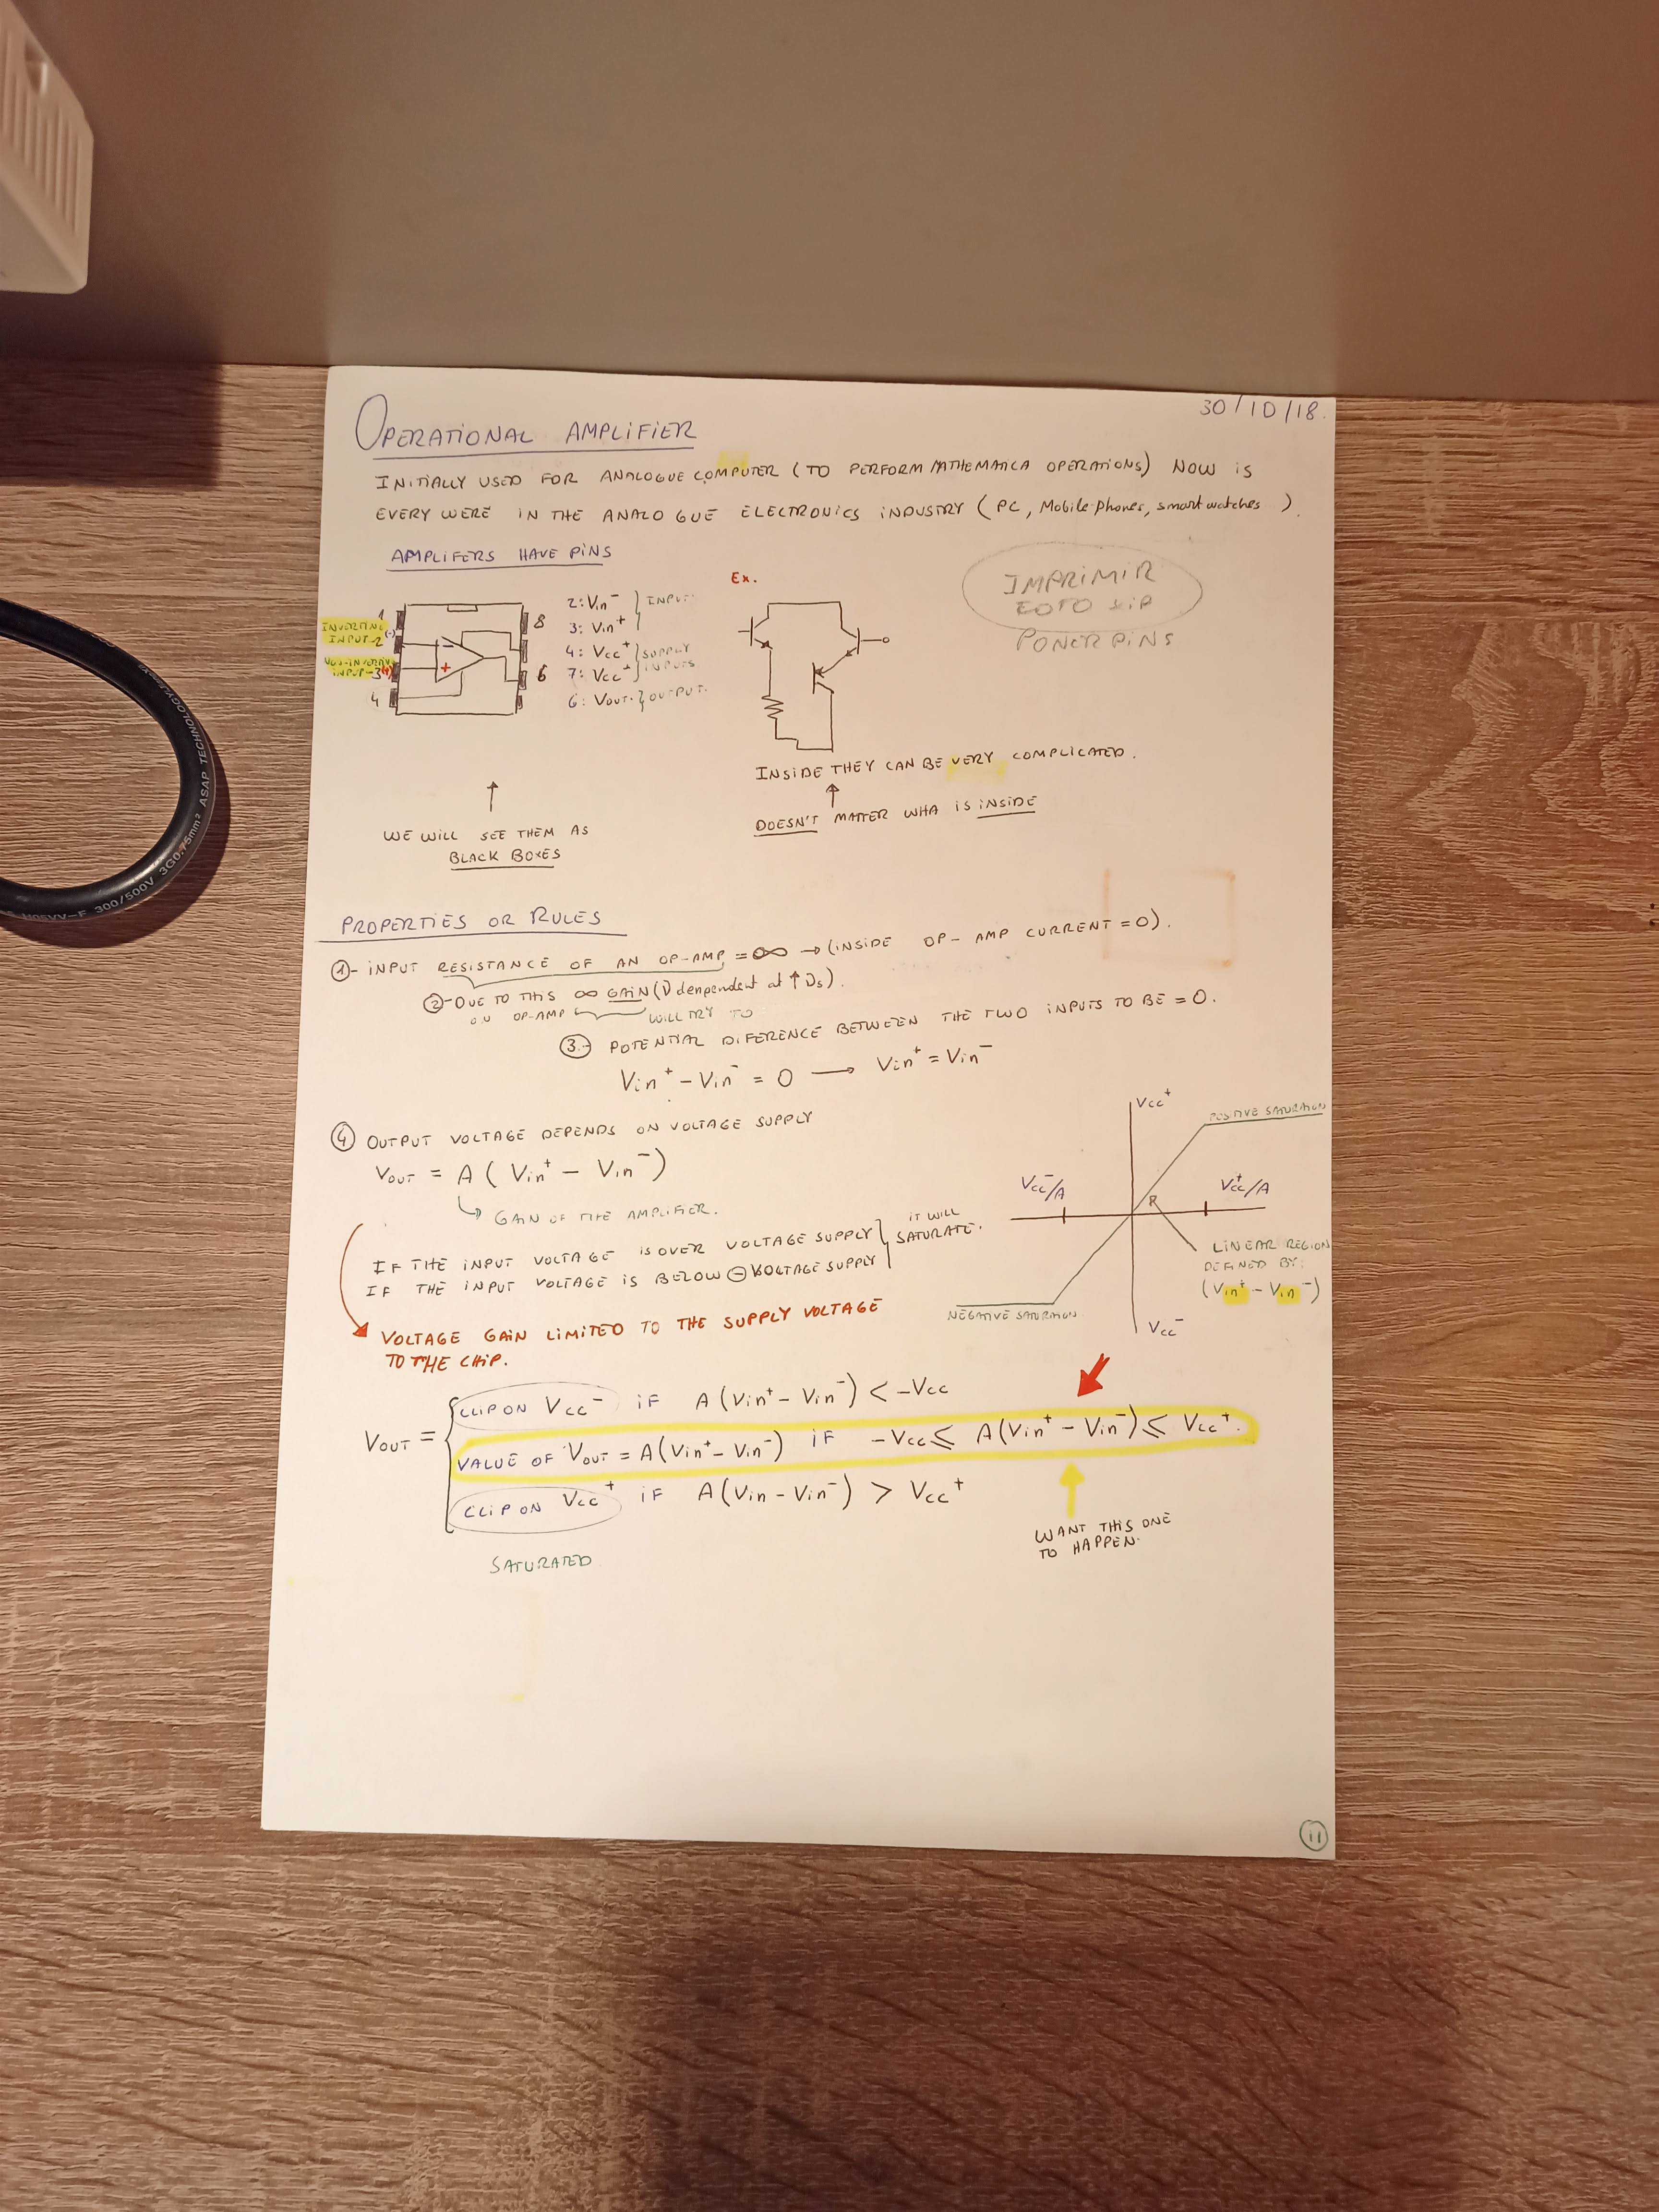 30/10/18.
OPERATIONAL AMPLIFIER
INITIALLY USED FOR ANALOGUE COMPUTER (TO PERFORM MATHEMATICA OPERATIONS) NOW IS
EVERY WERE IN THE ANALOGUE ELECTRONICS INDUSTRY (PC, Mobile phones, smartwatches ).
AMPLIFERS HAVE PINS
1
INVERTING
INPUT-2 (-)
INPUT-3 (+)
4
8
6
2: Vin⁻ } INPUT
3: Vin⁺
4: Vcc⁺ } SUPPLY
7: Vcc⁺ } INPUTS
6: VOUT. } OUTPUT.
Ex.
IMPRIMIR
FOTO
PINS
INSIDE THEY CAN BE VERY COMPLICATED.
DOESN'T MATTER WHA IS INSIDE
WE WILL SEE THEM AS
BLACK BOXES
PROPERTIES OR RULES
①- INPUT RESISTANCE OF AN OP-AMP = ∞ → (INSIDE OP-AMP CURRENT = 0).
②- DUE TO THIS ∞ GAIN (denpendent at ↑
ON OP-AMP WILL TRY TO
③- POTENTIAL DIFERENCE BETWEEN THE TWO INPUTS TO BE = 0.
Vin⁺ - Vin⁻ = 0 → Vin⁺ = Vin⁻
④ OUTPUT VOLTAGE DEPENDS ON VOLTAGE SUPPLY
VOUT = A ( Vin⁺ - Vin⁻ )
GAIN OF THE AMPLIFIER.
IF THE INPUT VOLTAGE IS OVER VOLTAGE SUPPLY
IF THE INPUT VOLTAGE IS BELOW ⊖ VOLTAGE SUPPLY
IT WILL
SATURATE.
VOLTAGE GAIN LIMITED TO THE SUPPLY VOLTAGE
TO THE CHIP.
Vcc⁺
POSITIVE SATURATION
Vcc⁻/A
Vcc⁺/A
R
LINEAR REGION
DEFINED BY:
(Vin⁺ - Vin⁻)
NEGATIVE SATURATION
Vcc⁻
CLIP ON Vcc⁻ IF A (Vin⁺ - Vin⁻) < -Vcc
VOUT =
VALUE OF VOUT = A (Vin⁺ - Vin⁻) IF -Vcc ≤ A (Vin⁺ - Vin⁻) ≤ Vcc⁺.
CLIP ON Vcc⁺ IF A (Vin - Vin⁻) > Vcc⁺
SATURATED
WANT THIS ONE
TO HAPPEN.
11
H05VV-F 300/500V 3G0.75mm² ASAP TECHNOLOGY